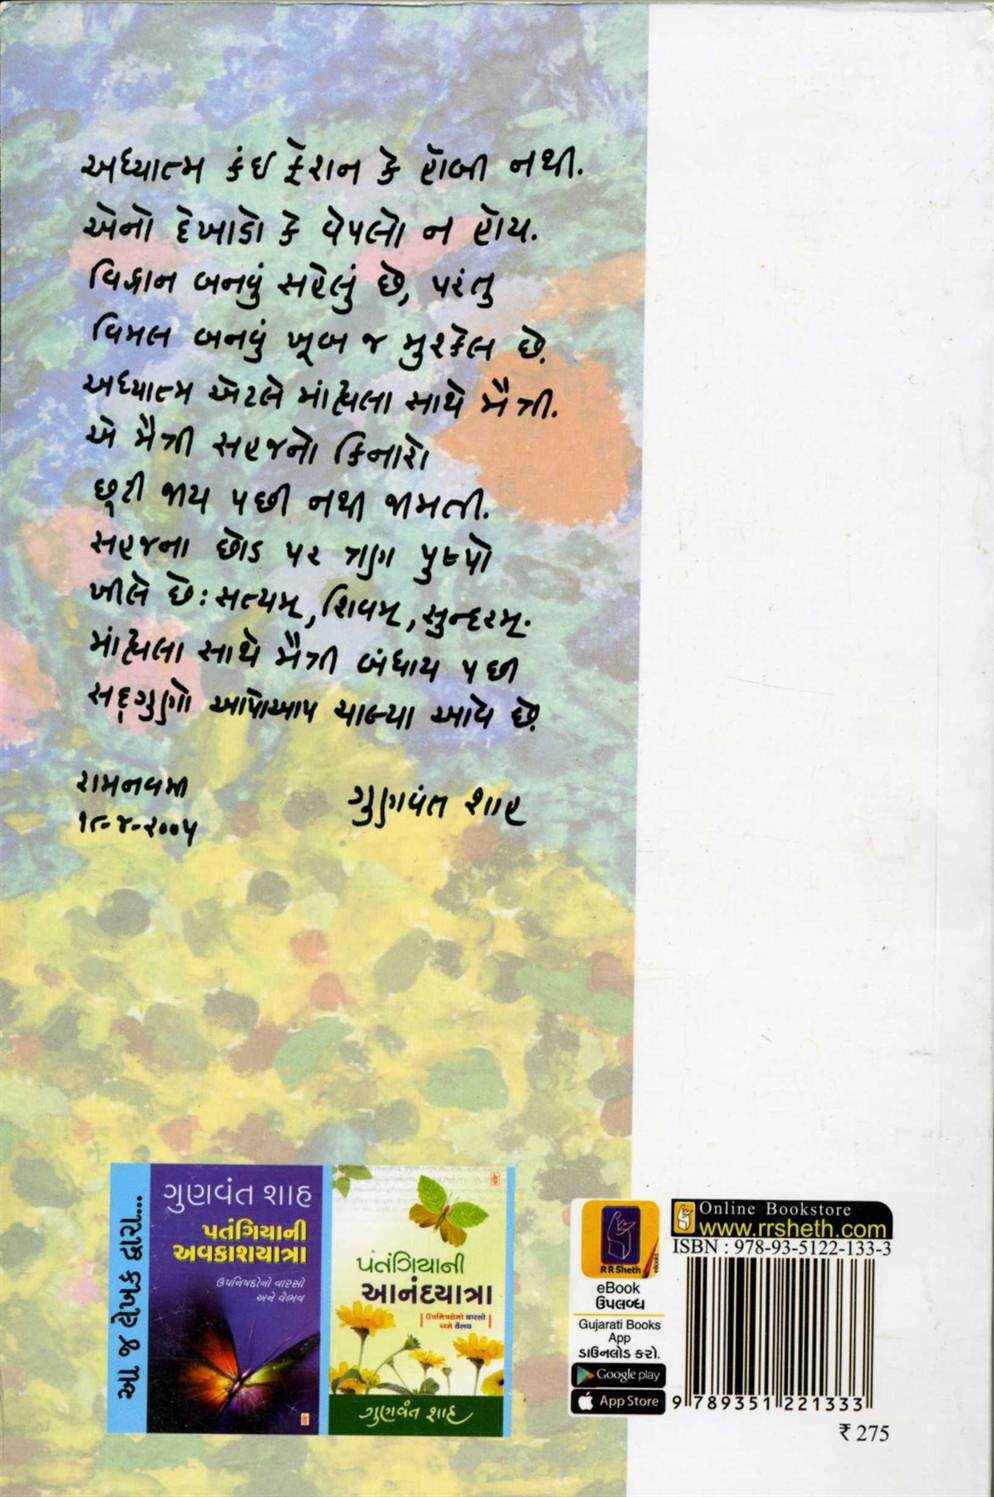 અધ્યાત્મ કંઈ ફેશન કે હૉબી નથી.
એનો દેખાડો કે વેપલો ન હોય.
વિદ્વાન બનવું સહેલું છે, પરંતુ
વિમલ બનવું ખૂબ જ મુશ્કેલ છે.
અધ્યાત્મ એટલે માંહ્યલા સાથે મૈત્રી.
એ મૈત્રી સહજનો કિનારો
છૂટી જાય પછી નથી જામતી.
સહજના છોડ પર ત્રણ પુષ્પો
ખીલે છે: સત્યમ્, શિવમ્, સુન્દરમ્.
માંહ્યલા સાથે મૈત્રી બંધાય પછી
સદ્ગુણો આપોઆપ ચાલ્યા આવે છે.
રામનવમી
૧૮-૪-૨૦૦૫
ગુણવંત શાહ
આ જ લેખક દ્વારા...
ગુણવંત શાહ
પતંગિયાની
અવકાશયાત્રા
ઉપનિષદોનો વારસો
અને વૈભવ
પતંગિયાની
આનંદયાત્રા
ઉપનિષદોનો વારસો
અને વૈભવ
ગુણવંત શાહ
R R Sheth
eBooks
eBook
ઉપલબ્ધ
Gujarati Books
App
ડાઉનલોડ કરો.
Google play
App Store
Online Bookstore
www.rrsheth.com
ISBN : 978-93-5122-133-3
9 789351 221333
₹ 275